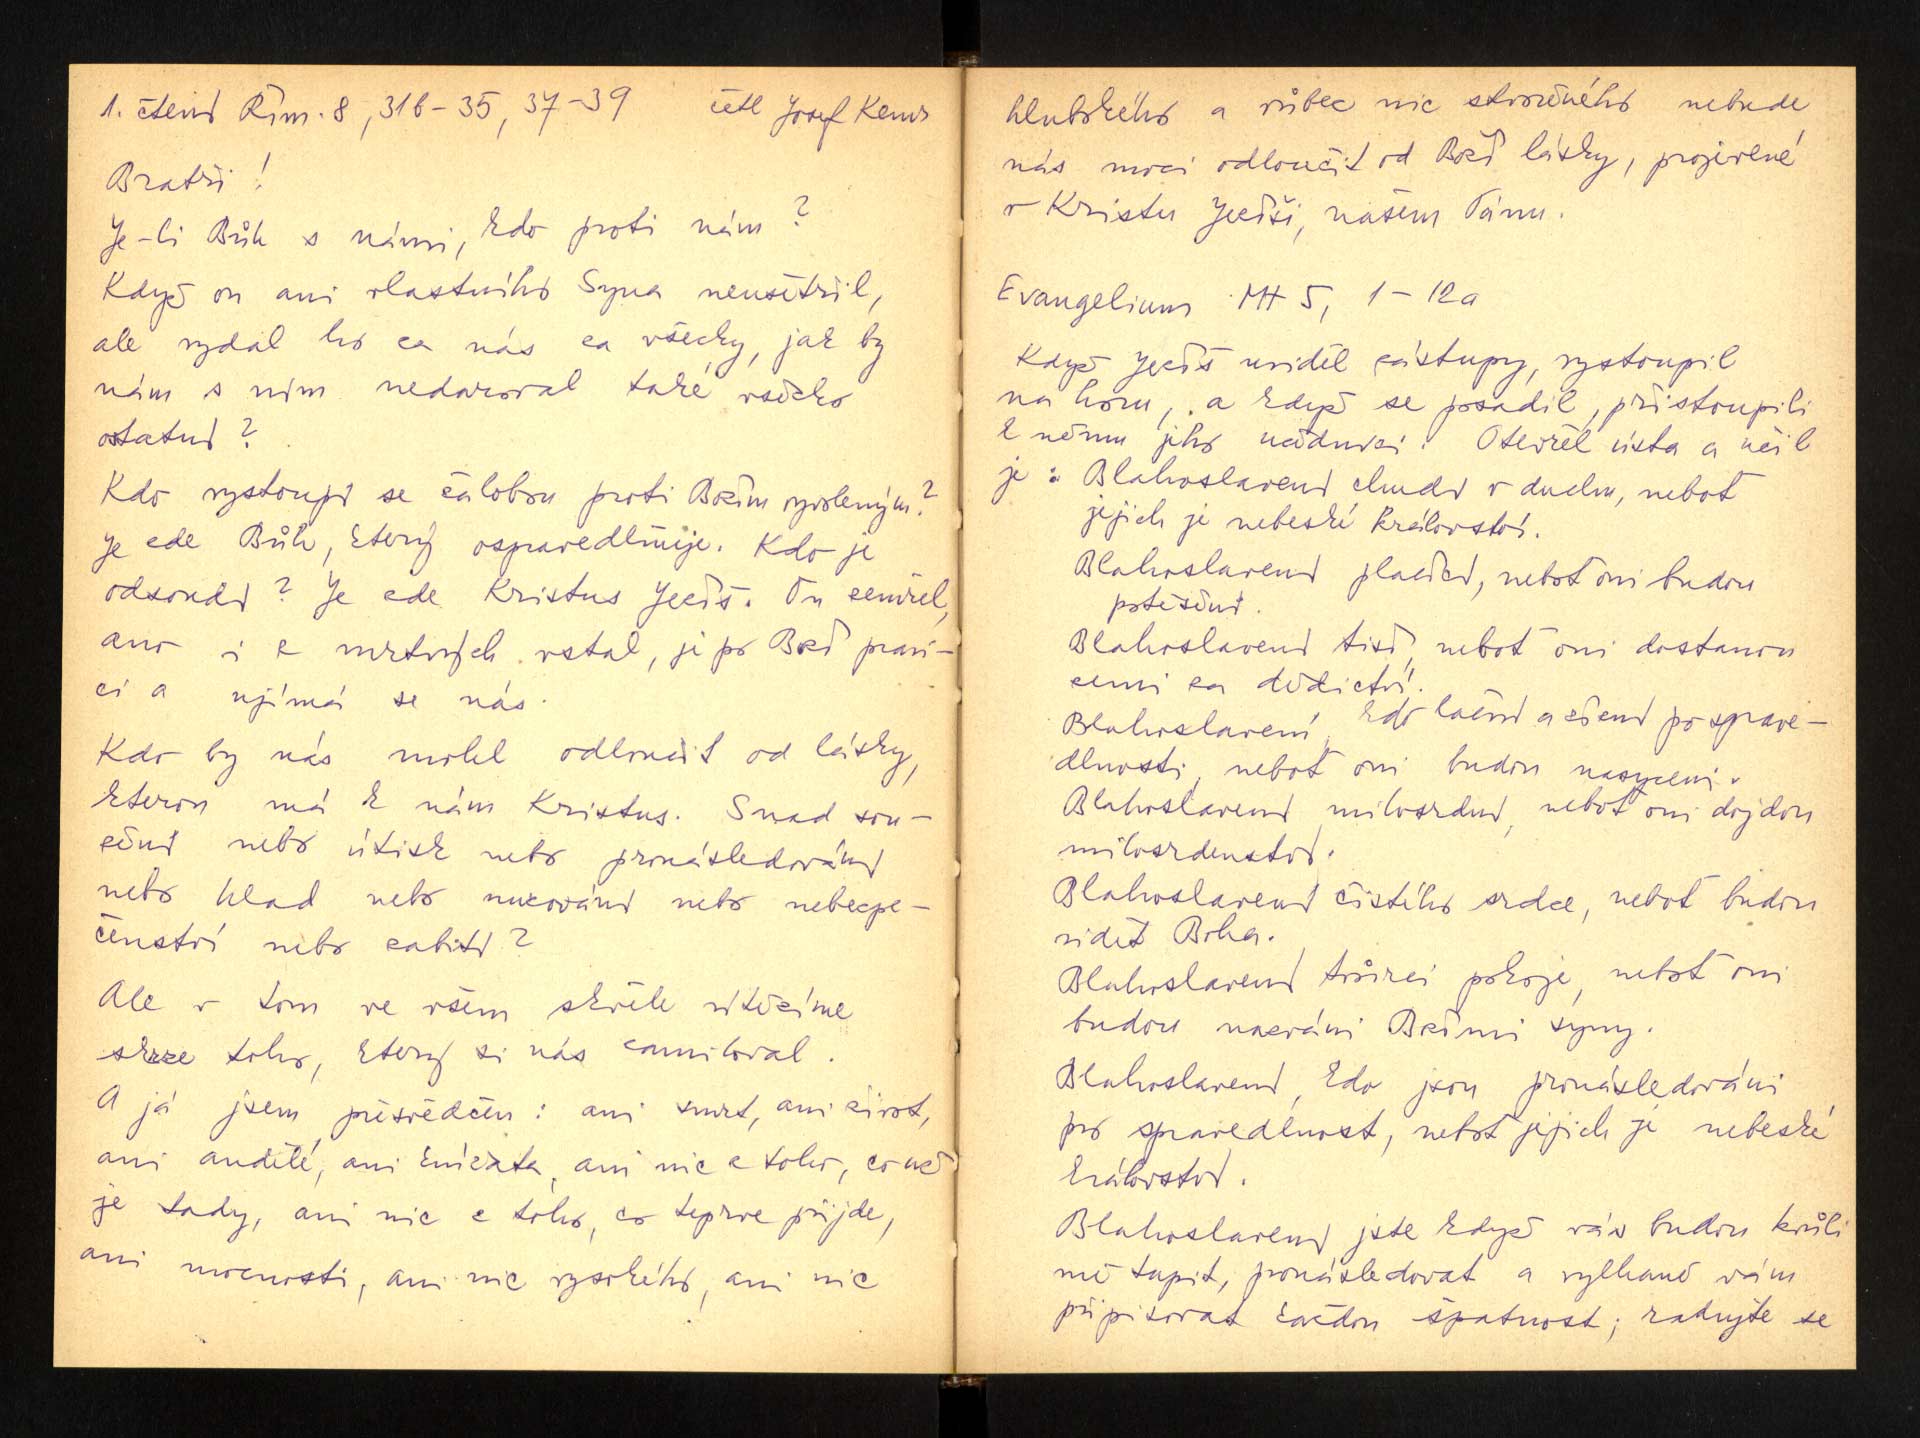 1. čtení Řím. 8, 31b-35, 37-39 četl Josef Kemr
Bratři!
Je-li Bůh s námi, kdo proti nám?
Když on ani vlastního Syna neušetřil,
ale vydal ho za nás za všecky, jak by
nám s ním nedaroval také všecko
ostatní?
Kdo vystoupí se žalobou proti Božím vyvoleným?
Je zde Bůh, který ospravedlňuje. Kdo je
odsoudí? Je zde Kristus Ježíš. On zemřel,
ano i z mrtvých vstal, je po Boží pravi-
ci a ujímá se nás.
Kdo by nás mohl odloučit od lásky,
kterou má k nám Kristus. Snad sou-
žení nebo útisk nebo pronásledování
nebo hlad nebo nuzování nebo nebezpe-
čenství nebo zabití?
Ale v tom ve všem skvěle vítězíme
skrze toho, který si nás zamiloval.
A já jsem přesvědčen: ani smrt, ani život,
ani andělé, ani knížata, ani nic z toho, co už
je tady, ani nic z toho, co teprve přijde,
ani mocnosti, ani nic vysokého, ani nic
hlubokého a vůbec nic stvořeného nebude
nás moci odloučit od Boží lásky, projevené
v Kristu Ježíši, našem Pánu.
Evangelium Mt 5, 1-12a
Když Ježíš uviděl zástupy, vystoupil
na horu, a když se posadil, přistoupili
k němu jeho učedníci. Otevřel ústa a učil
je: Blahoslavení chudí v duchu, neboť
jejich je nebeské království.
Blahoslavení plačící, neboť oni budou
potěšeni.
Blahoslavení tiší, neboť oni dostanou
zemi za dědictví.
Blahoslavení, kdo lační a žízní po sprave-
dlnosti, neboť oni budou nasyceni.
Blahoslavení milosrdní, neboť oni dojdou
milosrdenství.
Blahoslavení čistého srdce, neboť budou
vidět Boha.
Blahoslavení tvůrci pokoje, neboť oni
budou nazváni Božími syny.
Blahoslavení, kdo jsou pronásledováni
pro spravedlnost, neboť jejich je nebeské
království.
Blahoslavení jste když vás budou kvůli
mě tupit, pronásledovat a vylhaně vám
připisovat každou špatnost; radujte se